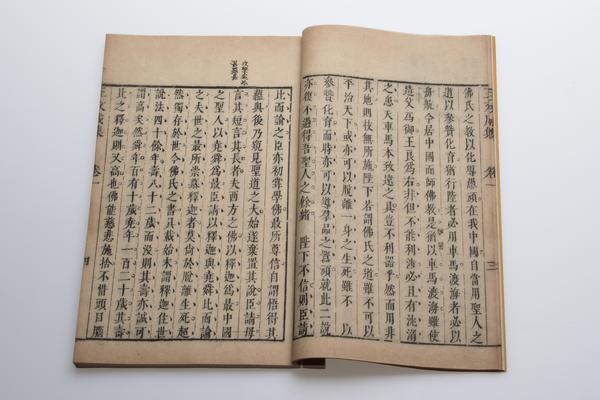 王文成集 卷一 三
佛氏之教以化導愚頑在我中國自當用聖人之
道以參贊化育猶行陸者必用車馬渡海者必以
舟航今居中國而師佛教是猶以車馬渡海雖使
造父為御王良為右非但不能利涉必且有沈溺
之患夫車馬本致遠之具豈不利器乎然而用非
其地則技無所施陛下若謂佛氏之道雖不可以
平治天下或亦可以脫離一身之生死雖不 以
參贊化育而時亦可以導羣品之嚚頑就此二說
亦復不過得吾聖人之餘緒 陛下不信則臣請
比而論之臣亦初嘗學佛最所尊信自謂悟得其
蘊奧後乃窺見聖道之大始遂棄置其說臣請毋
言其短言其長者夫西方之佛以釋迦為最中國
之聖人以堯舜為最臣請以釋迦與堯舜比而論
之夫世之最所崇慕釋迦者莫尚於脫離生死超
然獨存於世今佛氏之書具載始末謂釋迦住世
說法四十餘年壽八十二歲而沒則其壽亦誠可
謂高矣然舜年百有十歲堯年一百二十歲其壽
比之釋迦則又高也佛能慈悲施捨不惜頭目腦
王文成集 卷一 四